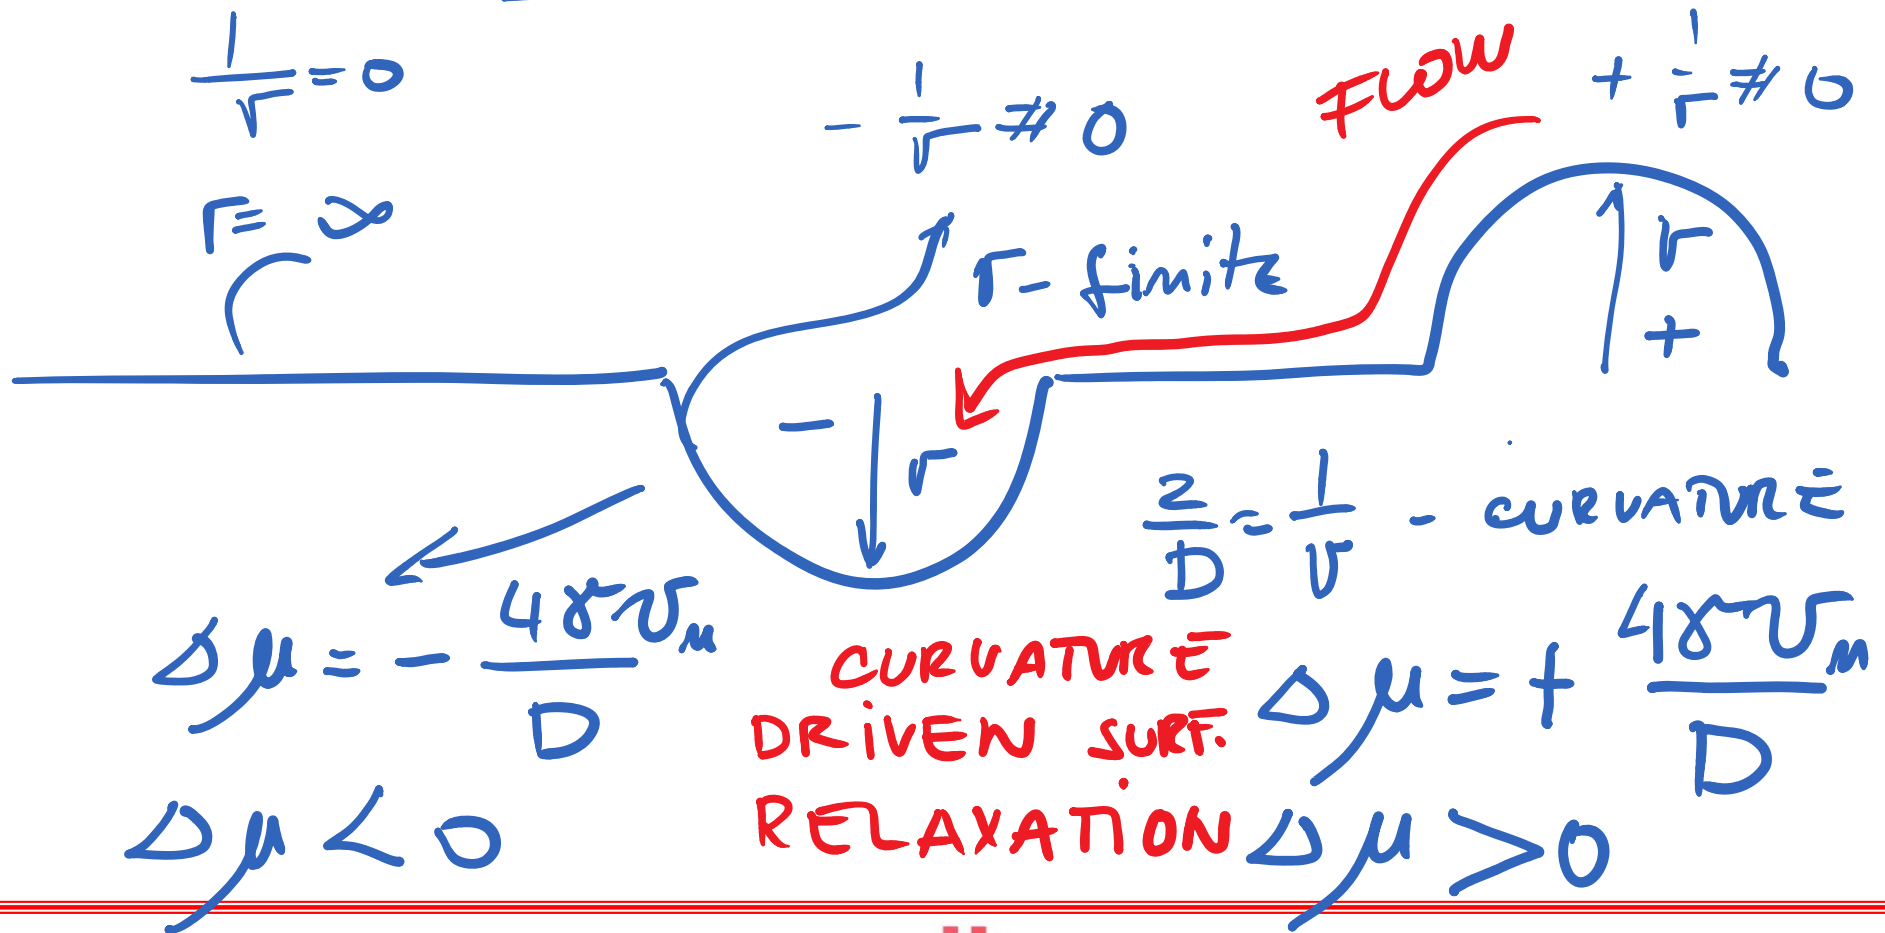 1/r = 0
r = ∞
- 1/r ≠ 0
r - finite
FLOW
+ 1/r ≠ 0
r
+
-
r
2/D = 1/r - CURVATURE
Δμ = - 4γVm/D
Δμ < 0
CURVATURE
DRIVEN SURF.
RELAXATION
Δμ = + 4γVm/D
Δμ > 0